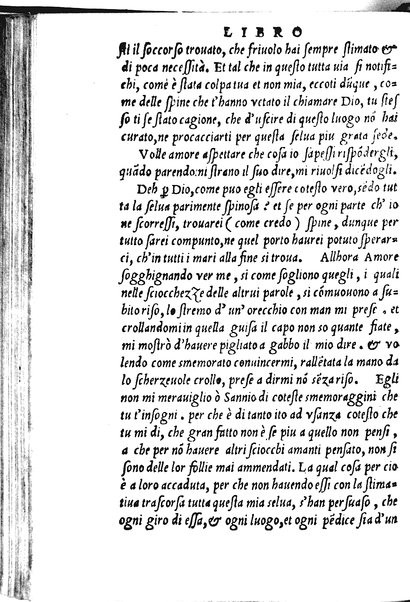 LIBRO
sti il soccorso trouato, che friuolo hai sempre stimato &
di poca necessità. Et tal che in questo tutta uia si notifi-
chi, com'è stata colpa tua et non mia, eccoti dũque, co-
me delle spine che t'hanno vetato il chiamare Dio, tu stes
so ti se stato cagione, che d'uscire di questo luogo nó hai
curato, ne procacciarti per questa selua piu grata sede.
Volle amore aspettare che cosa io sapessi rispõdergli,
quãdo parendomi strano il suo dire, mi riuolsi dicẽdogli.
Deh ꝑ Dio, come puo egli essere cotesto vero, sẽdo tut
ta la selua parimente spinosa? et se per ogni parte ch'io
ne scorressi, trouarei (come credo) spine, dunque per
tutto sarei compunto, ne quel porto haurei potuto sperar-
ci, ch'in tutti i mari alla fine si troua. Allhora Amore
sogghignando ver me, si come sogliono quegli, i quali
nelle sciocchezze delle altrui parole, si cómuouono a su-
bito riso, lo stremo d'un'orecchio con man mi prese. et
crollandomi in quella guisa il capo non so quante fiate,
mi mostrò d'hauere pigliato a gabbo il mio dire. & vo
lendo come smemorato conuincermi, rallẽtata la mano da
lo scherzeuole crollo, prese a dirmi nó sẽza riso. Egli
non mi merauiglio ò Sannio di coteste smemoraggini che
tu t'insogni. per che è di tanto ito ad vsanza cotesto che
tu mi di, che gran fatto non è se piu a quello non pensi,
a che per nó hauere altri sciocchi amanti pensato, non si
sono delle lor follie mai ammendati. La qual cosa per cio
è a loro accaduta, per che non hauendo essi con la stima-
tiua trascorsa tutta questa mia selua, s'han persuaso, che
ogni giro di essa, & ogni luogo, et ogni pẽdice sia d'un